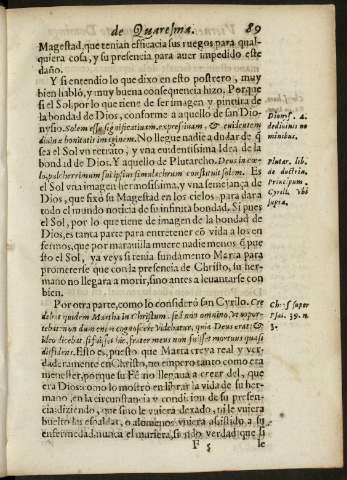 de Quaresma. 89
Magestad, que tenian efficacia sus ruegos para qual-
quiera cosa, y su presencia para auer impedido este
daño.
Y si entendio lo que dixo en esto postrero, muy
bien habló, y muy buena consequencia hizo. Porque
si el Sol, por lo que tiene de ser imagen y pintura de
la bondad de Dios, conforme a aquello de san Dio-
nysio. Solem esse significatiuam, expressiuam, & euidentem
diuinæ bonitatis imaginem. No llegue nadie a dudar de q̃
sea el Sol vn retrato, y vna euidentissima Idea de la
bondad de Dios. Y aquello de Plutarcho. Deus in cœ-
lo, pulcherrimum sui ipsius simulachrum constituit solem. Es
el Sol vna imagen hermosissima, y vna semejança de
Dios, que fixó su Magestad en los cielos, para dara
todo el mundo noticia de su infinita bondad. Si pues
el Sol, por lo que tiene de imagen de la bondad de
Dios, es tanta parte para entretener cō vida a los en
fermos, que por marauilla muere nadie menos q̃ pues
to el Sol, ya veys si tenia fundamento Marta para
prometerse que con la presencia de Christo, su her-
mano no llegara a morir, sino antes a leuantarse con
bien.
Por otra parte, como lo consideró san Cyrillo. Cre
debat quidem Martha in Christum, sed non omnino, vt opor-
tebat: non dum enim cognoscere videbatur, quòd Deus erat: &
ideo dicebat, si fuisses hic, frater meus non fuisset mortuus quasi
diffidens. Esto es, puesto que Marta creya real y ver-
daderamente en Christo, no empero tanto como era
menester, porque su Fè no llegaua a creer del, que
era Dios: como lo mostró en librar la vida de su her-
mano, en la circunstancia y condicion de su presen-
cia: diziendo, que sino le vuiera dexado, ni le vuiera
buelto las espaldas, o alomenos vuiera assistido a su
enfermedad, nunca el muriera, siendo verdad que si
F 5 le
Dionys. 4.
de diuinis no
minibus.
Plutar. lib.
de doctrin.
Principum.
Cyrill. vbi
supra.
Chrys. super
Psal. 39. n.
3.